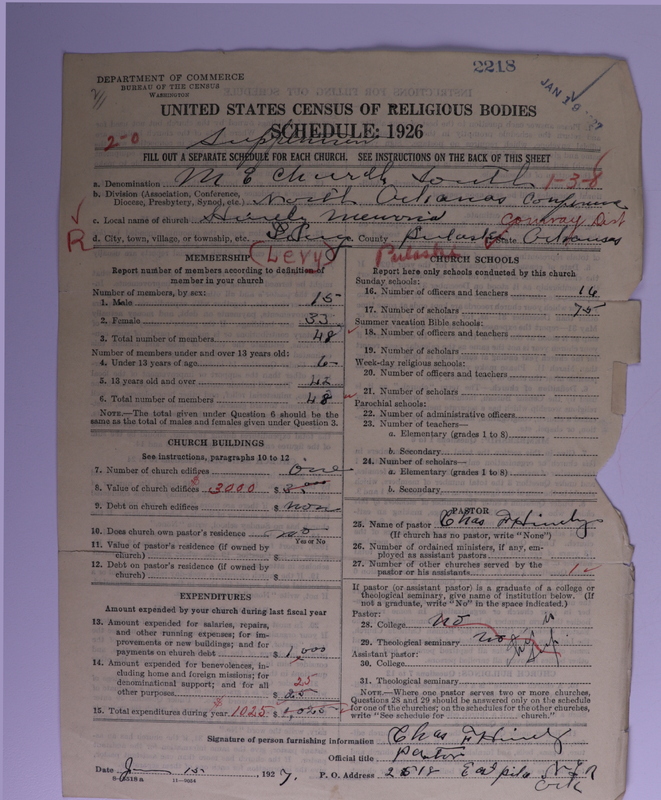 2218
DEPARTMENT OF COMMERCE
BUREAU OF THE CENSUS
WASHINGTON
JAN 18
UNITED STATES CENSUS OF RELIGIOUS BODIES
2-0
SCHEDULE: 1926
FILL OUT A SEPARATE SCHEDULE FOR EACH CHURCH. SEE INSTRUCTIONS ON THE BACK OF THIS SHEET
a. Denomination M E Church South 1-3-8
b. Division (Association, Conference,
Diocese, Presbytery, Synod, etc.) North Arkansas Conference
c. Local name of church Memorial Conway Dist
R d. City, town, village, or township, etc. Levy County Pulaski State Arkansas
(Levy) Pulaski
MEMBERSHIP
Report number of members according to definition of
member in your church
Number of members, by sex:
1. Male 15
2. Female 33
3. Total number of members 48
Number of members under and over 13 years old:
4. Under 13 years of age 6
5. 13 years old and over 42
6. Total number of members 48
NOTE.—The total given under Question 6 should be the
same as the total of males and females given under Question 3.
CHURCH BUILDINGS
See instructions, paragraphs 10 to 12
7. Number of church edifices one
8. Value of church edifices $ 3000 $
9. Debt on church edifices $ none
10. Does church own pastor's residence no
Yes or No
11. Value of pastor's residence (if owned by
church) $
12. Debt on pastor's residence (if owned by
church) $
EXPENDITURES
Amount expended by your church during last fiscal year
13. Amount expended for salaries, repairs,
and other running expenses; for im-
provements or new buildings; and for
payments on church debt $ 1,000
14. Amount expended for benevolences, in-
cluding home and foreign missions; for
denominational support; and for all
other purposes $ 25
25
15. Total expenditures during year $ 1025 $ 1,025
CHURCH SCHOOLS
Report here only schools conducted by this church
Sunday schools:
16. Number of officers and teachers 14
17. Number of scholars 75
Summer vacation Bible schools:
18. Number of officers and teachers
19. Number of scholars
Week-day religious schools:
20. Number of officers and teachers
21. Number of scholars
Parochial schools:
22. Number of administrative officers
23. Number of teachers—
a. Elementary (grades 1 to 8)
b. Secondary
24. Number of scholars—
a. Elementary (grades 1 to 8)
b. Secondary
PASTOR
25. Name of pastor Chas F Hively
(If church has no pastor, write "None")
26. Number of ordained ministers, if any, em-
ployed as assistant pastors
27. Number of other churches served by the
pastor or his assistants 1
If pastor (or assistant pastor) is a graduate of a college or
theological seminary, give name of institution below. (If
not a graduate, write "No" in the space indicated.)
Pastor:
28. College No
29. Theological seminary no
Assistant pastor:
30. College
31. Theological seminary
NOTE.—Where one pastor serves two or more churches,
Questions 28 and 29 should be answered only on the schedule
for one of the churches; on the schedules for the other churches,
write "See schedule for church."
Signature of person furnishing information Chas F Hively
Official title pastor
Date Jan 15, 1927. P. O. Address 2518 East pike N L R
Ark
8-5518 a 11—9054